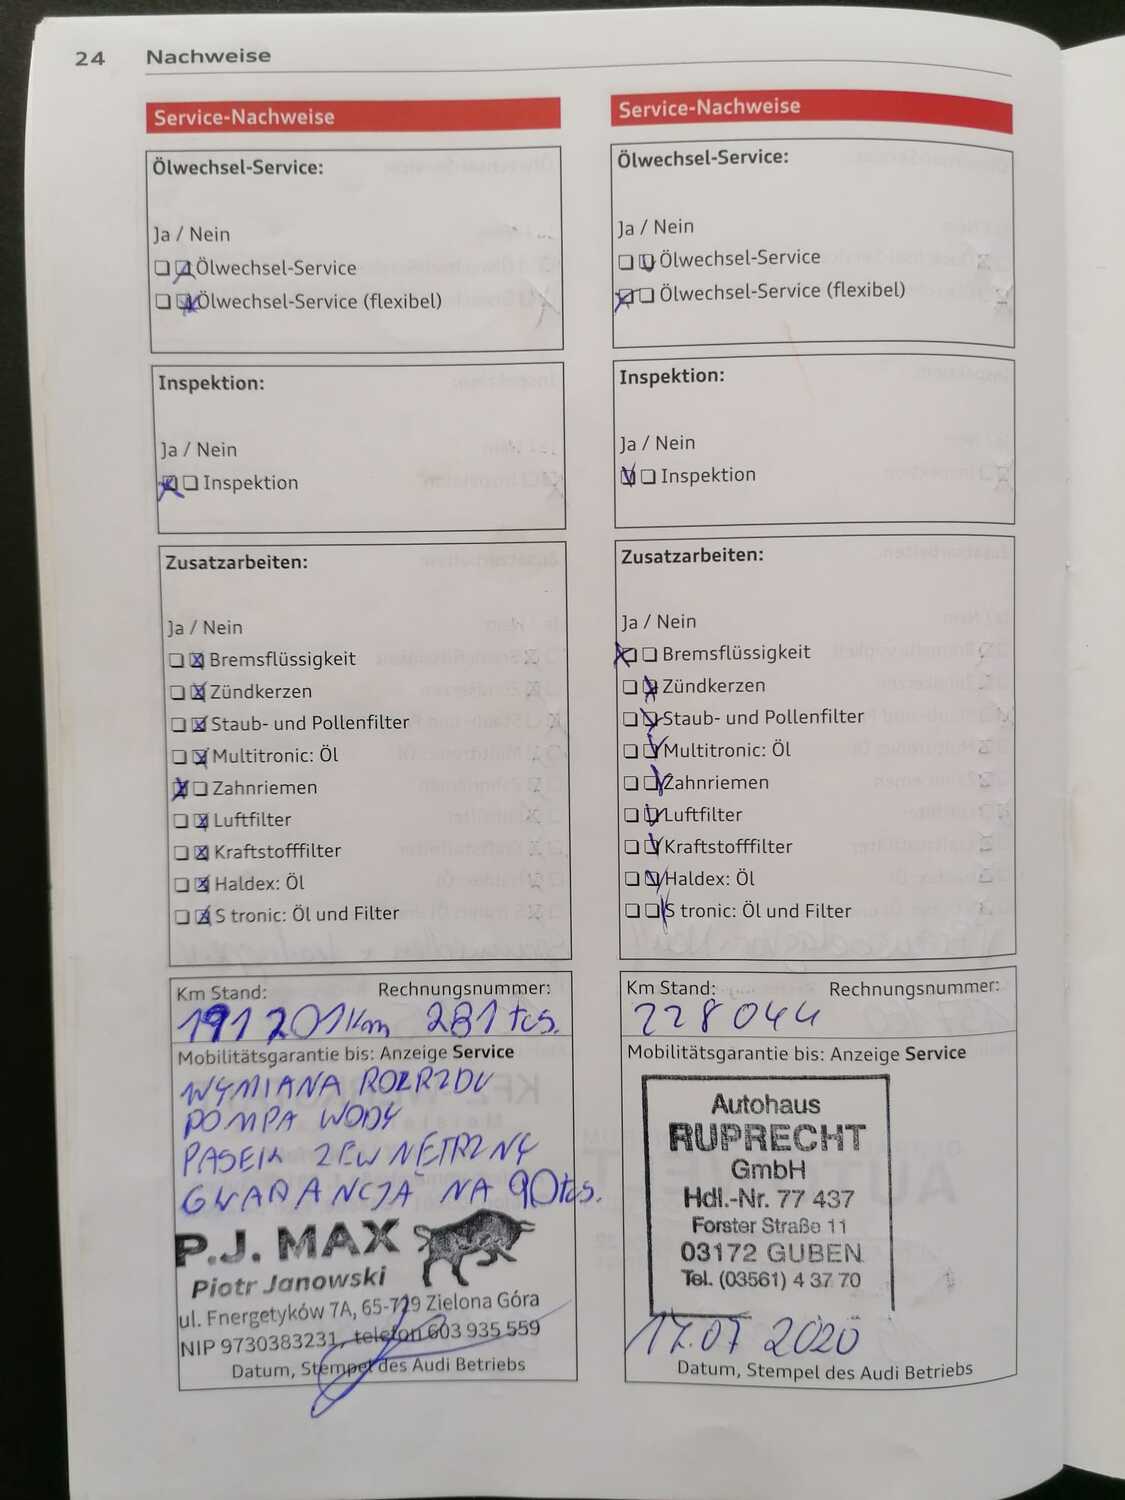 24 Nachweise
Service-Nachweise
Ölwechsel-Service:
Ja / Nein
Ölwechsel-Service
Ölwechsel-Service (flexibel)
Inspektion:
Ja / Nein
Inspektion
Zusatzarbeiten:
Ja / Nein
Bremsflüssigkeit
Zündkerzen
Staub- und Pollenfilter
Multitronic: Öl
Zahnriemen
Luftfilter
Kraftstofffilter
Haldex: Öl
S tronic: Öl und Filter
Km Stand: Rechnungsnummer:
191201Km 281 tcs.
Mobilitätsgarantie bis: Anzeige Service
WYMIANA ROZRZDU
POMPA WODY
PASEK ZEWNETRZNY
GWARANCJA NA 90tcs.
P.J. MAX
Piotr Janowski
ul. Energetyków 7A, 65-729 Zielona Góra
NIP 9730383231, telefon 603 935 559
Datum, Stempel des Audi Betriebs
Service-Nachweise
Ölwechsel-Service:
Ja / Nein
Ölwechsel-Service
Ölwechsel-Service (flexibel)
Inspektion:
Ja / Nein
Inspektion
Zusatzarbeiten:
Ja / Nein
Bremsflüssigkeit
Zündkerzen
Staub- und Pollenfilter
Multitronic: Öl
Zahnriemen
Luftfilter
Kraftstofffilter
Haldex: Öl
S tronic: Öl und Filter
Km Stand: Rechnungsnummer:
228044
Mobilitätsgarantie bis: Anzeige Service
Autohaus
RUPRECHT
GmbH
Hdl.-Nr. 77 437
Forster Straße 11
03172 GUBEN
Tel. (03561) 4 37 70
17.07 2020
Datum, Stempel des Audi Betriebs